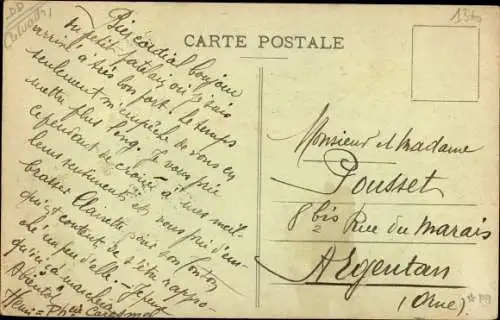 (Calvados)
1340
CARTE POSTALE
Bien cordial bonjour
du petit patelin où je suis
arrivé à très bon port. Le temps
seulement m'empêche de vous en
mettre plus long. Je vous prie
cependant de croire à mes meil-
leurs sentiments et vous prie d'em-
brasser Clairette
qui est contente de s'être rappro-
chée un peu d'elle.
qu'ici
Abientôt
Henri
Monsieur et Madame
Pousset
8 bis Rue du Marais
Argentan
(Orne)